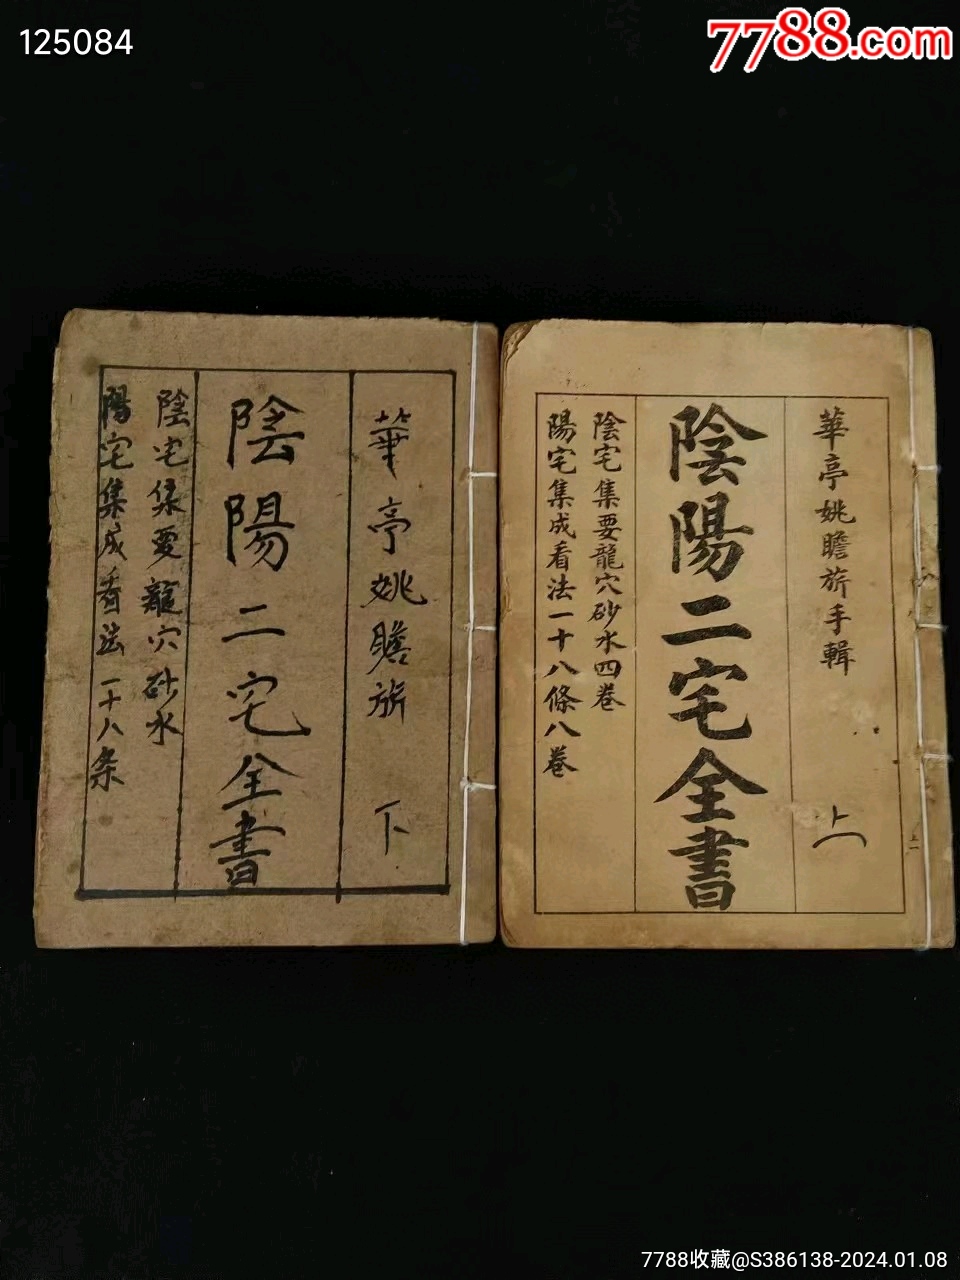 125084
7788.com
華亭姚瞻旂手輯
上
陰陽二宅全書
陰宅集要龍穴砂水四卷
陽宅集成看法一十八條八卷
華亭姚瞻旂
下
陰陽二宅全書
陰宅集要龍穴砂水
陽宅集成看法一十八条
7788收藏@S386138-2024.01.08